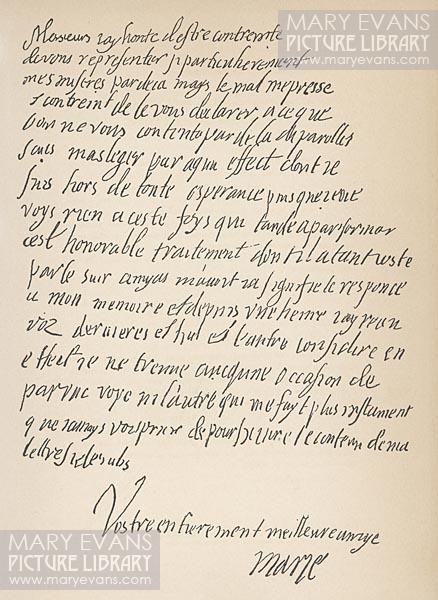 MARY EVANS
PICTURE LIBRARY
www.maryevans.com
Monsieur jay honte destre contreinte
de vous representer si particulierement
mes miseres par deca mays le mal me presse
contreint de le vous declarer a ce que
vous ne vous contente par de la de parolles
sans masleger par aqun effect dont je
suis hors de toute esperance puis que je ne
voys rien a ceste foys qui tande a parformer
cest honorable traitement dont il a tant
par le sieur a signifie le responce
a mon memoire et depuis une heure jay reseu
voz dernieres et lun et lautre considere en
effect je ne treuve aucune occasion de
par une voye ni lautre qui me fayt plus instament
que jamays vous prier de poursuivre le contenu de ma
lettre si desubs
Vostre entierement meilleure amye
Marie
MARY EVANS
PICTURE LIBRARY
www.maryevans.com